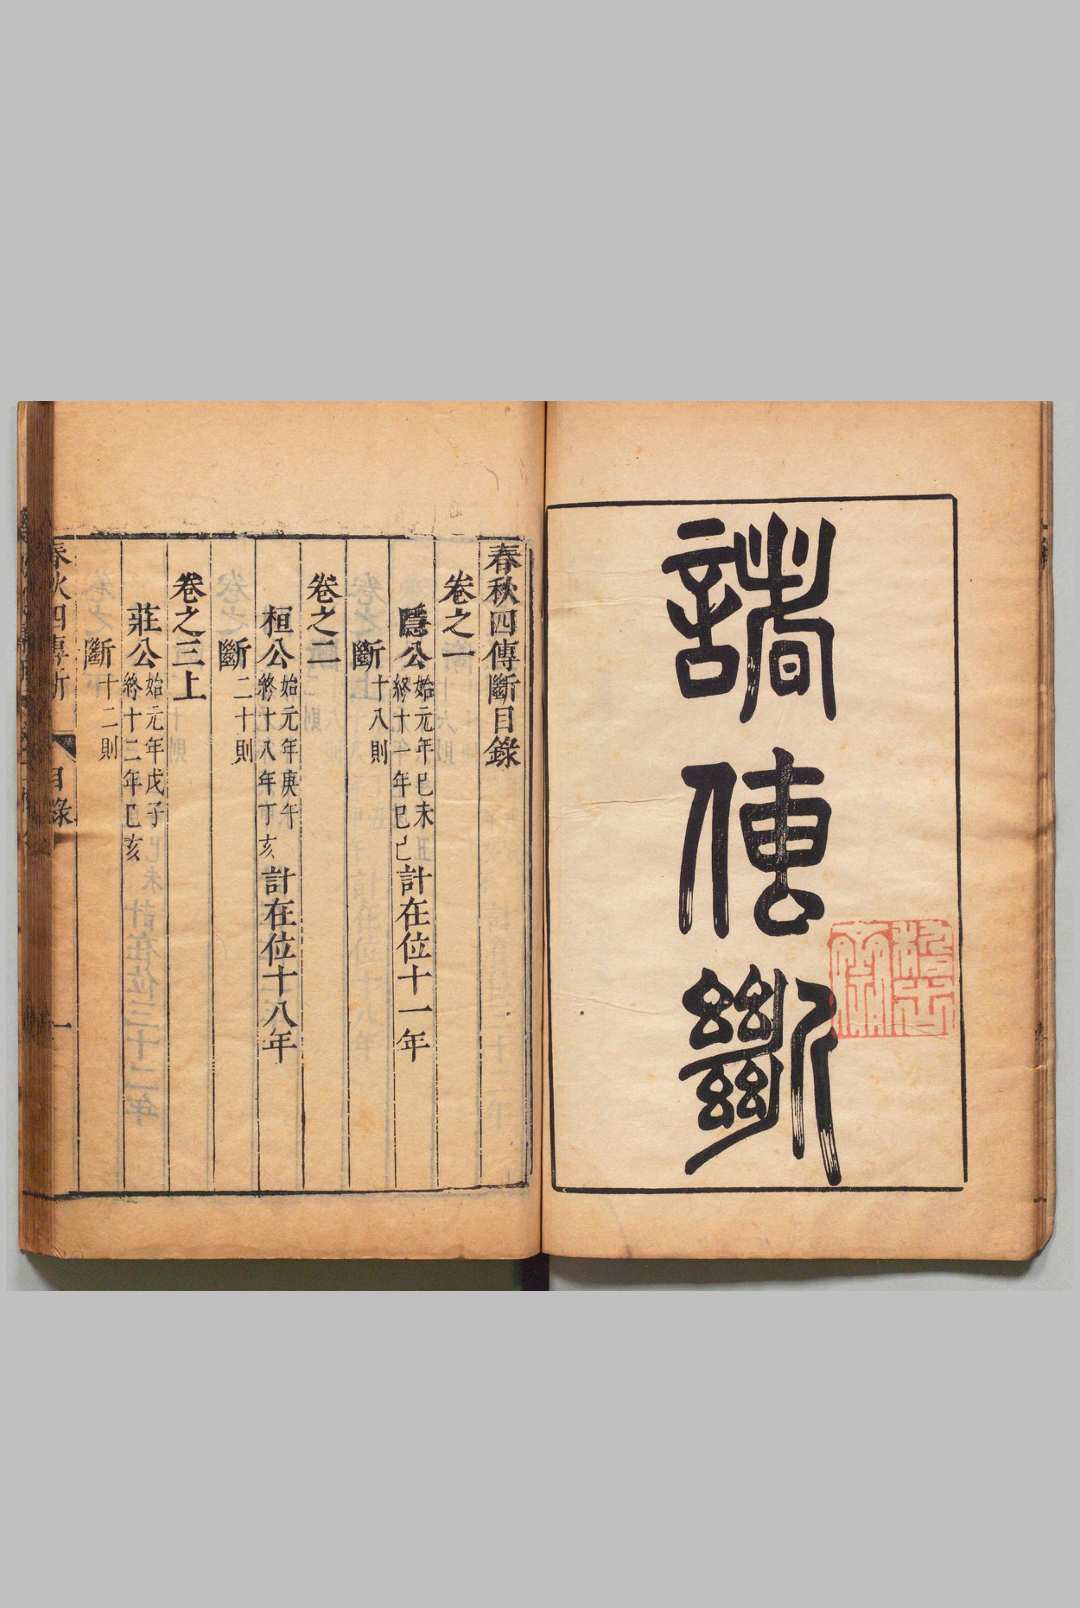 諸傳斷
春秋四傳斷目錄
卷之一
隱公始元年已未終十一年已巳計在位十一年
斷十八則
卷之二
桓公始元年庚午終十八年丁亥計在位十八年
斷二十則
卷之三上
莊公始元年戊子終十二年已亥
斷十二則
春秋四傳斷
目錄
一